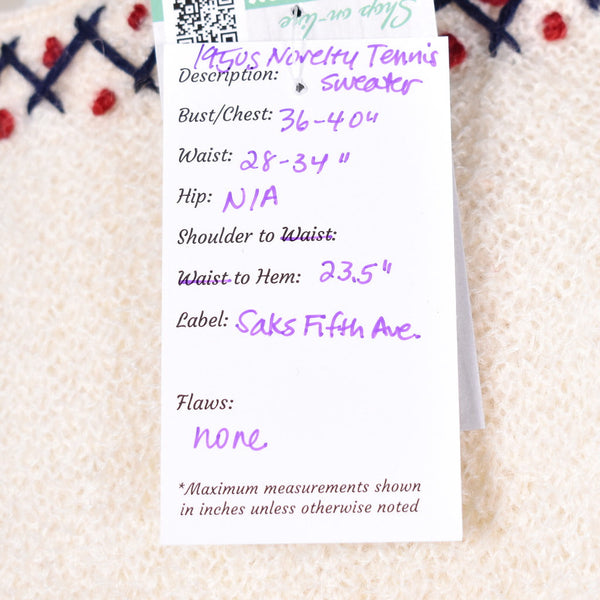 Shop on-line
1950s Novelty Tennis
Description: sweater
Bust/Chest: 36-40"
Waist: 28-34"
Hip: N/A
Shoulder to Waist:
Waist to Hem: 23.5"
Label: Saks Fifth Ave.
Flaws:
none
*Maximum measurements shown
in inches unless otherwise noted